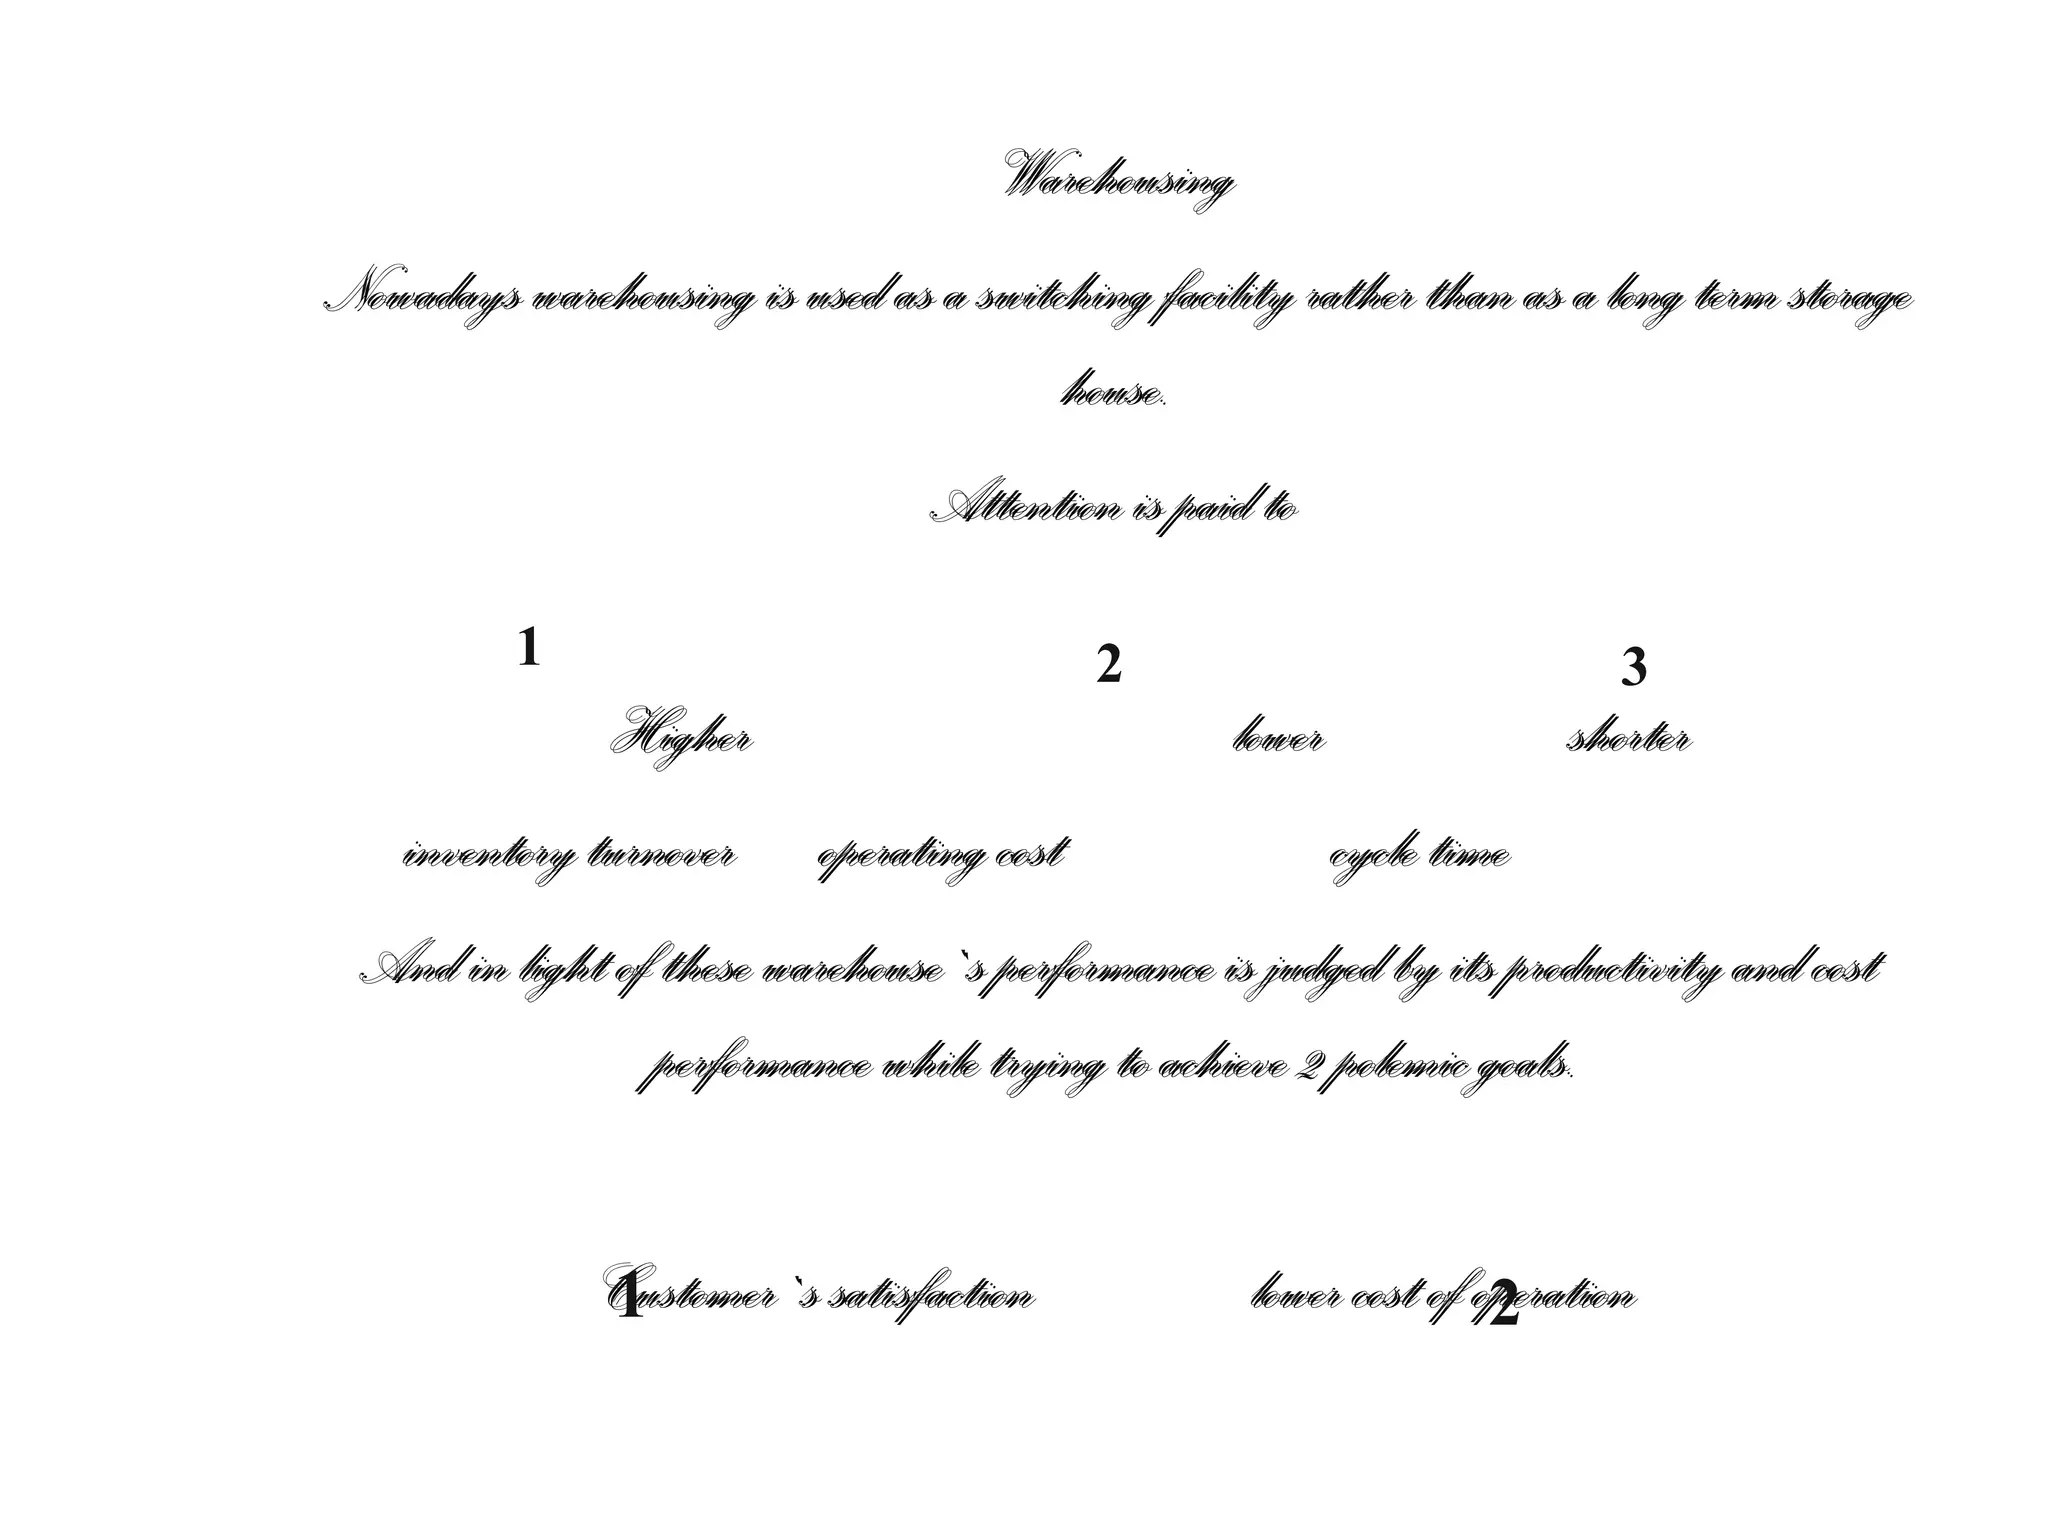 Warehousing
Nowadays warehousing is used as a switching facility rather than as a long term storage
house.
Attention is paid to
1 2 3
Higher lower shorter
inventory turnover operating cost cycle time
And in light of these warehouse `s performance is judged by its productivity and cost
performance while trying to achieve 2 polemic goals.
1 2
Customer `s satisfaction lower cost of operation